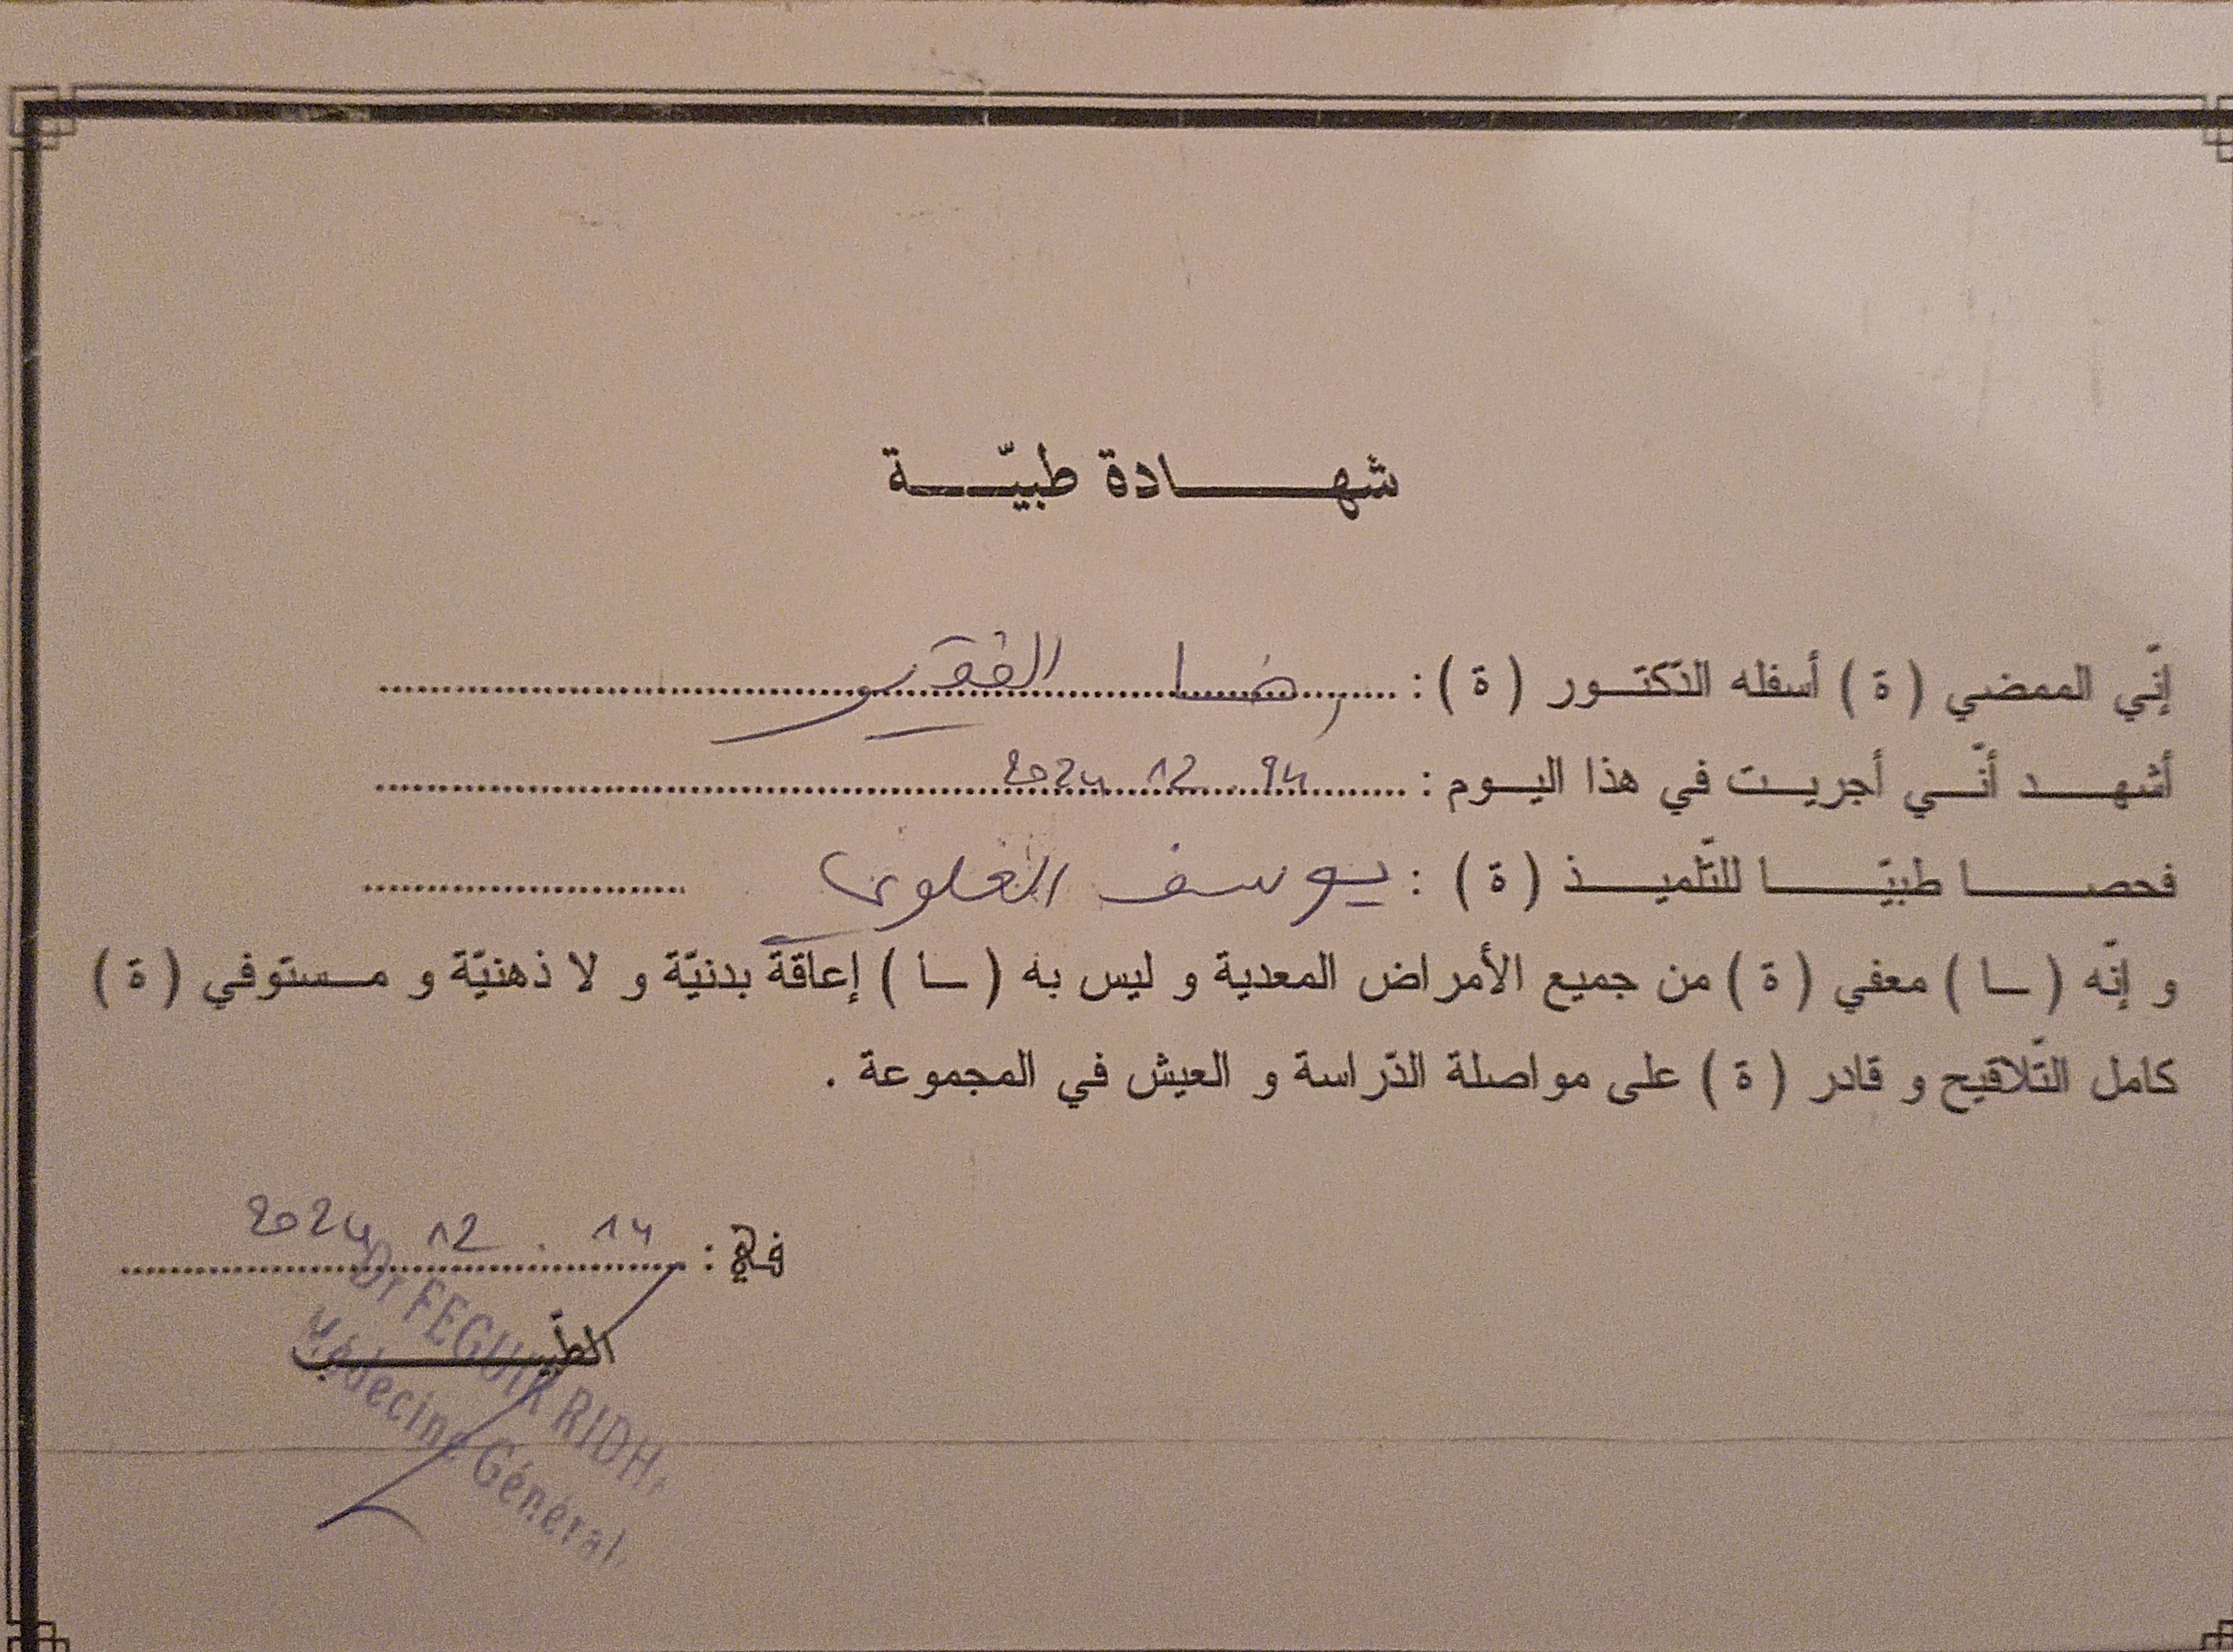 شهادة طبيّة
إنّي الممضي ( ة ) أسفله الدّكتور ( ة ) : رضا الفقير
أشهد أنّي أجريت في هذا اليوم : 14 12 2024
فحصا طبيّا للتّلميذ ( ة ) : يوسف العلوي
و إنّه ( ـا ) معفي ( ة ) من جميع الأمراض المعدية و ليس به ( ـا ) إعاقة بدنيّة و لا ذهنيّة و مستوفي ( ة )
كامل التّلاقيح و قادر ( ة ) على مواصلة الدّراسة و العيش في المجموعة .
في : 14 . 12 2024
الطّبيب
Dr FEGUIR RIDH
Médecine Général